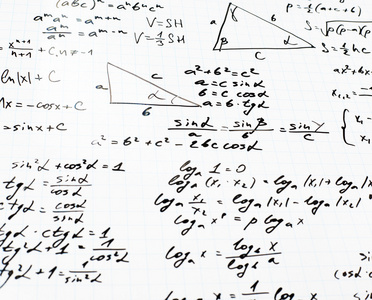 (abc)ⁿ = aⁿbⁿcⁿ
aᵐaⁿ = aᵐ⁺ⁿ
V = SH
aᵐ/aⁿ = aᵐ⁻ⁿ
V = 1/3 SH
xⁿ⁺¹/(n+1) + C, n ≠ -1
a γ b
β α
c
p = 1/2(a+b+c)
S = √p(p-a)(p
S = 1/2 hc
ln|x| + C
a c
α
b
a² + b² = c²
a = c sinα
b = c cosα
a = b · tgα
ax² + bx
x₁,₂ =
dx = -cosx + C
= sinx + C
sinα/a = sinβ/b = sinγ/c
a² = b² + c² - 2bc cosα
x₁
x₂
sin²α + cos²α = 1
tgα = sinα/cosα
ctgα = cosα/sinα
tgα · ctgα = 1
tg²α + 1 = 1/cos²α
ctg²α + 1 = 1/sin²α
logₐ 1 = 0
logₐ (x₁ · x₂) = logₐ|x₁| + logₐ|x
logₐ x₁/x₂ = logₐ|x₁| - logₐ|x₂|
logₐ xᵖ = p logₐ x
logₐ x = log_b x / log_b a
sin
cos(α
logₐ x = 1/ logₐ x
sin